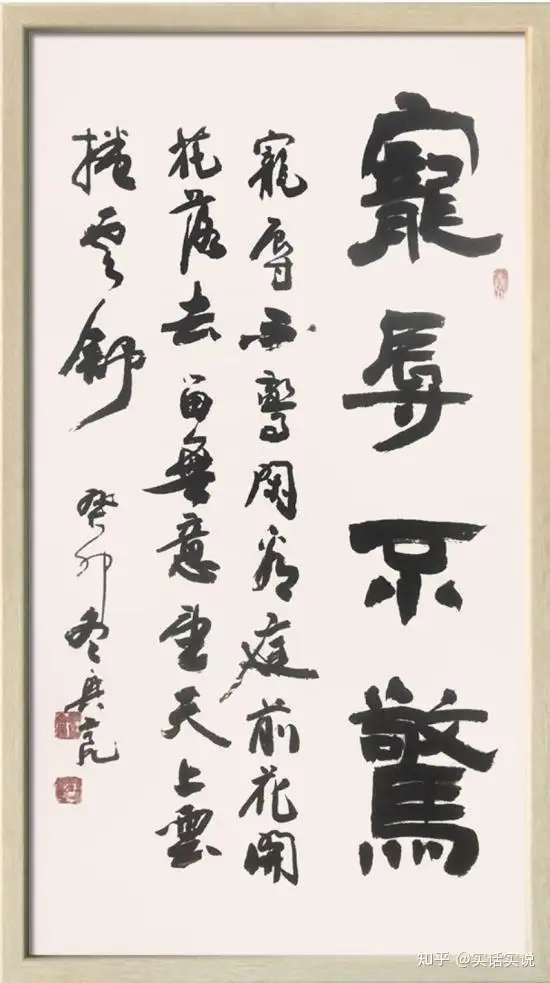 寵辱不驚
寵辱不驚閑看庭前花開
花落去留無意望天上雲
捲雲舒
癸卯冬
知乎 @实话实说